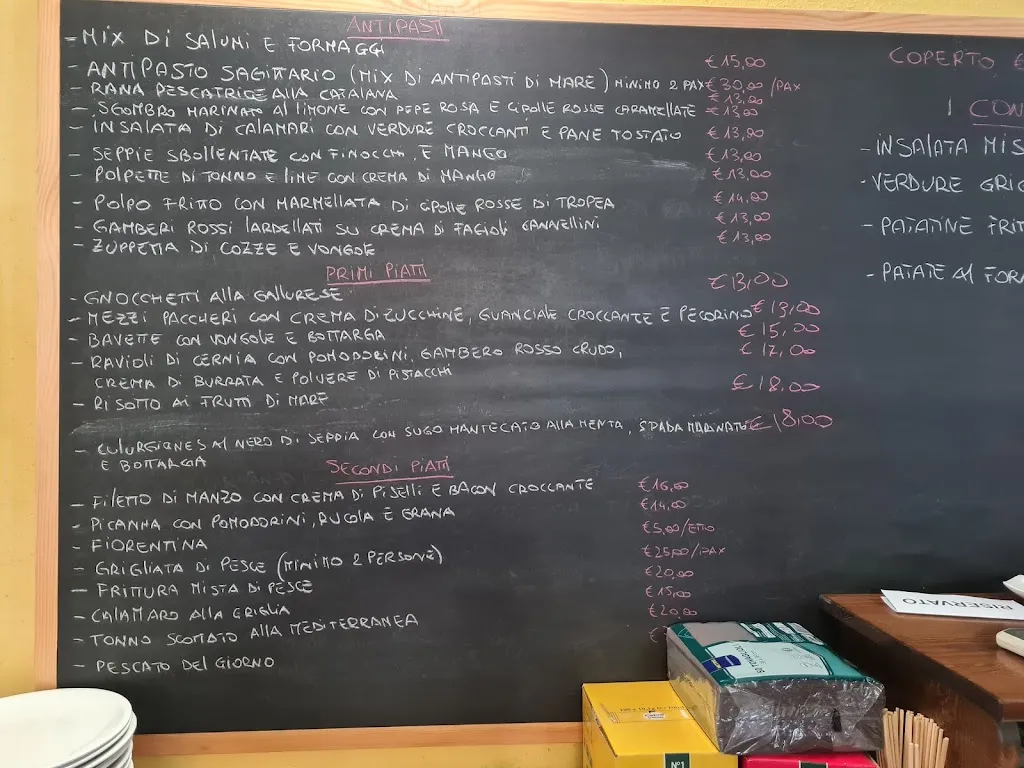 ANTIPASTI
- MIX DI SALUMI E FORMAGGI €15,00
- ANTIPASTO SAGITTARIO (MIX DI ANTIPASTI DI MARE) MINIMO 2 PAX €30,00/PAX
- RANA PESCATRICE ALLA CATALANA €13,00
- SGOMBRO MARINATO AL LIMONE CON PEPE ROSA E CIPOLLE ROSSE CARAMELLATE €13,00
- INSALATA DI CALAMARI CON VERDURE CROCCANTI E PANE TOSTATO €13,00
- SEPPIE SBOLLENTATE CON FINOCCHI E MANGO €13,00
- POLPETTE DI TONNO E LIME CON CREMA DI MANGO €13,00
- POLPO FRITTO CON MARMELLATA DI CIPOLLE ROSSE DI TROPEA €14,00
- GAMBERI ROSSI LARDELLATI SU CREMA DI FAGIOLI CANNELLINI €13,00
- ZUPPETTA DI COZZE E VONGOLE €13,00
PRIMI PIATTI
- GNOCCHETTI ALLA GALLURESE €13,00
- MEZZI PACCHERI CON CREMA DI ZUCCHINE, GUANCIALE CROCCANTE E PECORINO €13,00
- BAVETTE CON VONGOLE E BOTTARGA €15,00
- RAVIOLI DI CERNIA CON POMODORINI, GAMBERO ROSSO CRUDO, €17,00
CREMA DI BURRATA E POLVERE DI PISTACCHI
- RISOTTO AI FRUTTI DI MARE €18,00
- CULURGIONES AL NERO DI SEPPIA CON SUGO MANTECATO ALLA MENTA, SPADA MARINATO €18,00
E BOTTARGA
SECONDI PIATTI
- FILETTO DI MANZO CON CREMA DI PISELLI E BACON CROCCANTE €16,00
- PICANHA CON POMODORINI, RUCOLA E GRANA €14,00
- FIORENTINA €5,00/ETTO
- GRIGLIATA DI PESCE (MINIMO 2 PERSONE) €25,00/PAX
- FRITTURA MISTA DI PESCE €20,00
- CALAMARO ALLA GRIGLIA €15,00
- TONNO SCOTTATO ALLA MEDITERRANEA €20,00
- PESCATO DEL GIORNO €
COPERTO €
I CON
- INSALATA MIS
- VERDURE GRIG
- PATATINE FRIT
- PATATE AL FOR
RISERVATO
N°1